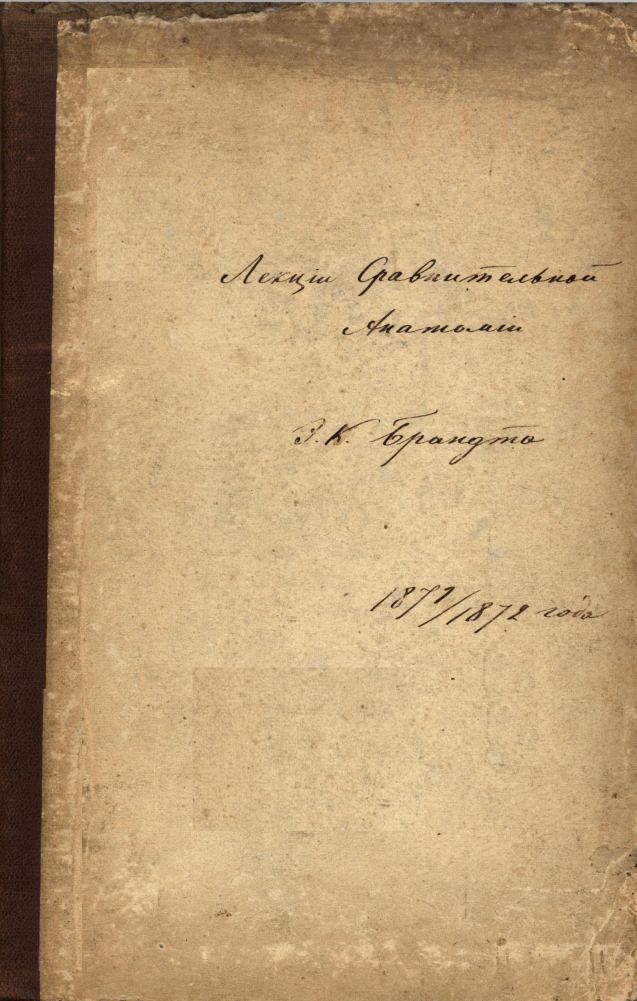 Лекціи Сравнительной
Анатоміи
Э. К. Брандта
1871/1872 года